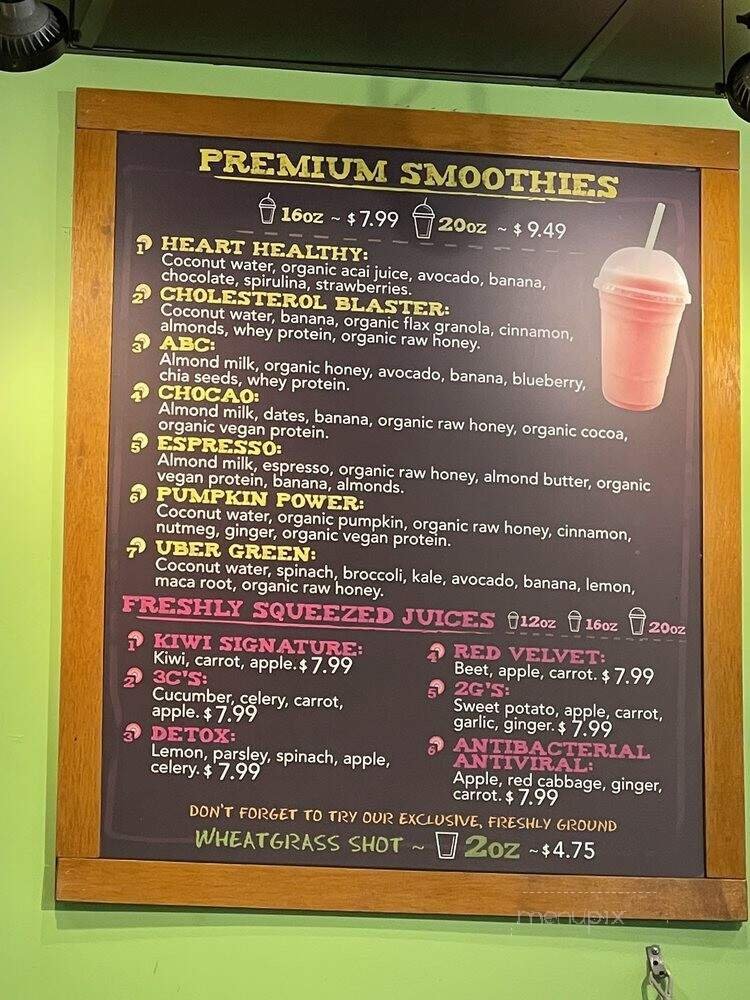 PREMIUM SMOOTHIES
16oz ~ $7.99 20oz ~ $9.49
1 HEART HEALTHY:
Coconut water, organic acai juice, avocado, banana,
chocolate, spirulina, strawberries.
2 CHOLESTEROL BLASTER:
Coconut water, banana, organic flax granola, cinnamon,
almonds, whey protein, organic raw honey.
3 ABC:
Almond milk, organic honey, avocado, banana, blueberry,
chia seeds, whey protein.
4 CHOCAO:
Almond milk, dates, banana, organic raw honey, organic cocoa,
organic vegan protein.
5 ESPRESSO:
Almond milk, espresso, organic raw honey, almond butter, organic
vegan protein, banana, almonds.
6 PUMPKIN POWER:
Coconut water, organic pumpkin, organic raw honey, cinnamon,
nutmeg, ginger, organic vegan protein.
7 UBER GREEN:
Coconut water, spinach, broccoli, kale, avocado, banana, lemon,
maca root, organic raw honey.
FRESHLY SQUEEZED JUICES 12oz 16oz 20oz
1 KIWI SIGNATURE:
Kiwi, carrot, apple. $7.99
2 3C'S:
Cucumber, celery, carrot,
apple. $7.99
3 DETOX:
Lemon, parsley, spinach, apple,
celery. $7.99
4 RED VELVET:
Beet, apple, carrot. $7.99
5 2G'S:
Sweet potato, apple, carrot,
garlic, ginger. $7.99
6 ANTIBACTERIAL
ANTIVIRAL:
Apple, red cabbage, ginger,
carrot. $7.99
DON'T FORGET TO TRY OUR EXCLUSIVE, FRESHLY GROUND
WHEATGRASS SHOT ~ 2oz ~$4.75
menupix